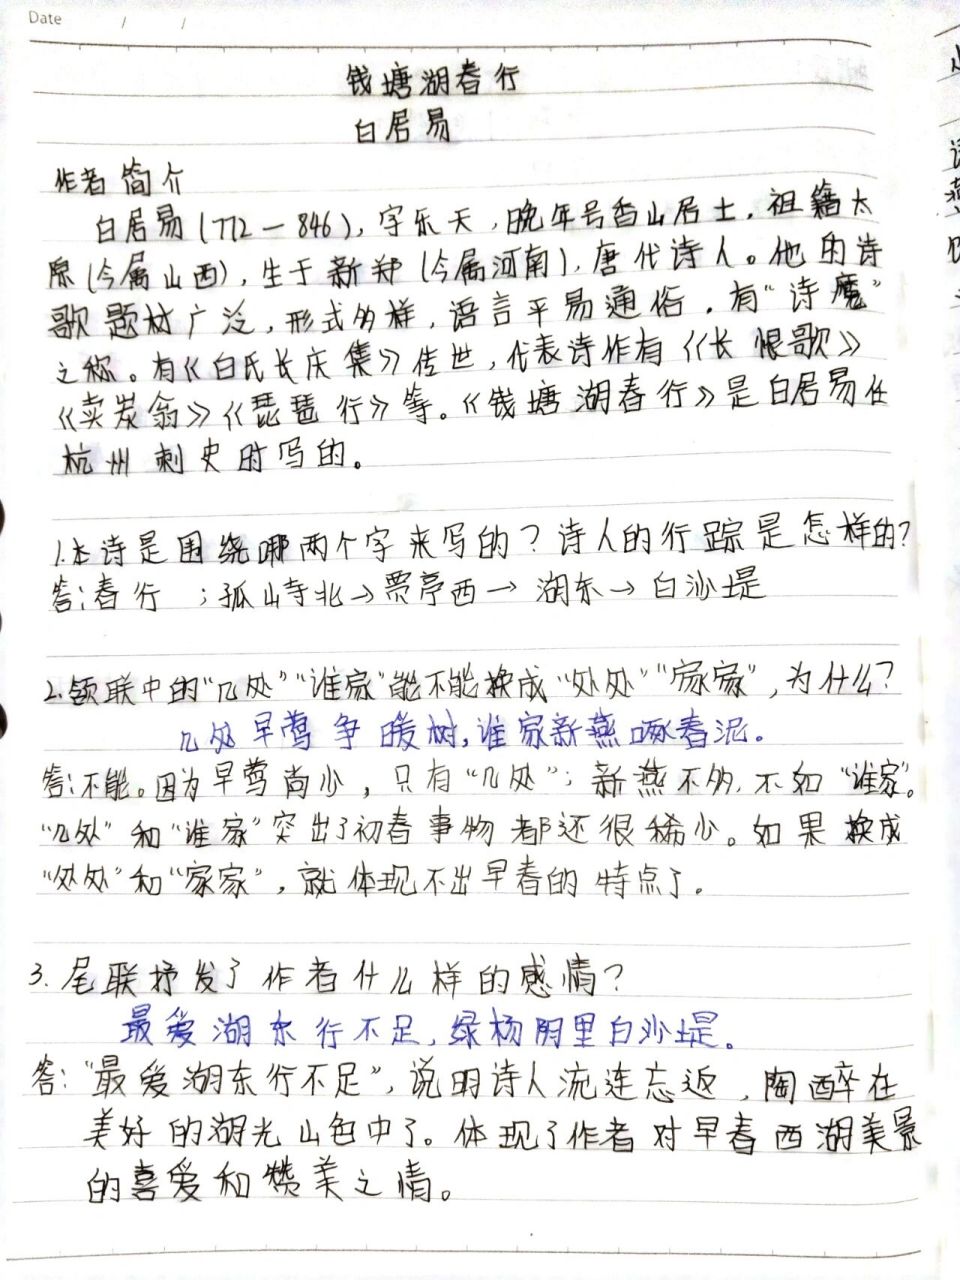 Date / /
钱塘湖春行
白居易
作者简介
白居易(772—846),字乐天,晚年号香山居士,祖籍太
原(今属山西),生于新郑(今属河南),唐代诗人。他的诗
歌题材广泛,形式多样,语言平易通俗,有“诗魔”
之称。有《白氏长庆集》传世,代表诗作有《长恨歌》
《卖炭翁》《琵琶行》等。《钱塘湖春行》是白居易任
杭州刺史时写的。
1.本诗是围绕哪两个字来写的?诗人的行踪是怎样的?
答:春行 ;孤山寺北→贾亭西→湖东→白沙堤
2.颔联中的“几处”“谁家”能不能换成“处处”“家家”,为什么?
几处早莺争暖树,谁家新燕啄春泥。
答:不能。因为早莺尚少,只有“几处”;新燕不多,不如“谁家”。
“几处”和“谁家”突出了初春事物都还很稀少。如果换成
“处处”和“家家”,就体现不出早春的特点了。
3.尾联抒发了作者什么样的感情?
最爱湖东行不足,绿杨阴里白沙堤。
答:“最爱湖东行不足”,说明诗人流连忘返,陶醉在
美好的湖光山色中了。体现了作者对早春西湖美景
的喜爱和赞美之情。